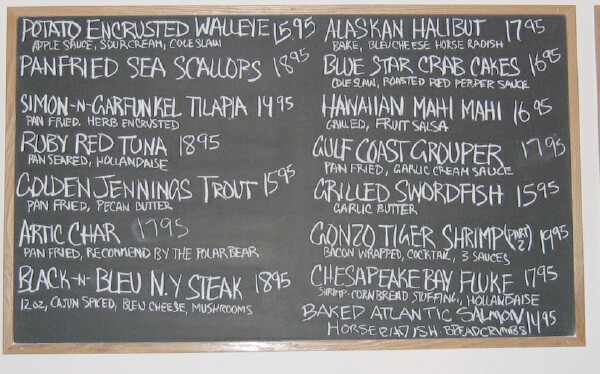 POTATO ENCRUSTED WALLEYE 15.95
APPLE SAUCE, SOUR CREAM, COLESLAW
PANFRIED SEA SCALLOPS 18.95
SIMON-N-GARFUNKEL TILAPIA 14.95
PAN FRIED. HERB ENCRUSTED
RUBY RED TUNA 18.95
PAN SEARED, HOLLANDAISE
GOLDEN JENNINGS TROUT 15.95
PAN FRIED, PECAN BUTTER
ARTIC CHAR 17.95
PAN FRIED, RECOMMEND BY THE POLAR BEAR
BLACK-N-BLEU N.Y STEAK 18.95
12 OZ, CAJUN SPICED, BLEU CHEESE, MUSHROOMS
ALASKAN HALIBUT 17.95
BAKE, BLEU CHEESE HORSE RADISH
BLUE STAR CRAB CAKES 16.95
COLESLAW, ROASTED RED PEPPER SAUCE
HAWAIIAN MAHI MAHI 16.95
GRILLED, FRUIT SALSA
GULF COAST GROUPER 17.95
PAN FRIED, GARLIC CREAM SAUCE
GRILLED SWORDFISH 15.95
GARLIC BUTTER
GONZO TIGER SHRIMP (PART 2) 19.95
BACON WRAPPED, COCKTAIL, 3 SAUCES
CHESAPEAKE BAY FLUKE 17.95
SHRIMP-CORNBREAD STUFFING, HOLLANDAISE
BAKED ATLANTIC SALMON 14.95
HORSERADISH. BREADCRUMBS